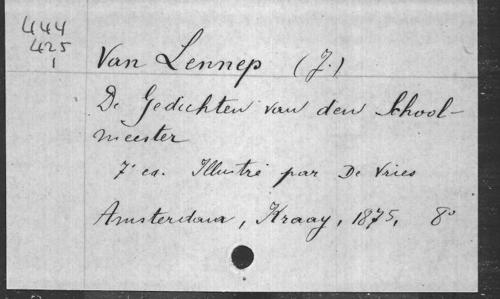 444
425
1
Van Lennep (J.)
De Gedichten van den School-
meester
7e ed. Illustré par De Vries
Amsterdam, Kraay, 1875, 8°